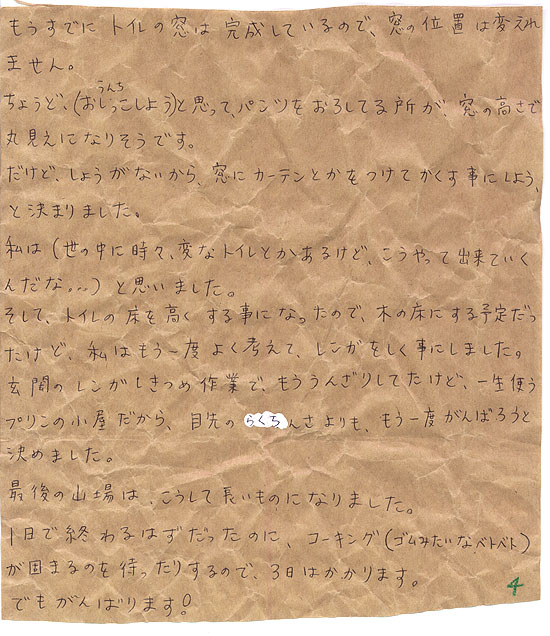 もうすでに トイレの窓は 完成しているので、窓の位置は変えれ
ません。
うんち
ちょうど、(おしっこしよう)と思って、パンツをおろしてる所が、窓の高さで
丸見えになりそうです。
だけど、しょうがないから、窓にカーテンとかをつけてかくす事にしよう、
と決まりました。
私は(世の中に時々、変なトイレとかあるけど、こうやって出来ていく
んだな...)と思いました。
そして、トイレの床を高くする事になったので、木の床にする予定だっ
たけど、私はもう一度よく考えて、レンガをしく事にしました。
玄関のレンガしきつめ作業で、もううんざりしてたけど、一生使う
プリンの小屋だから、目先のらくちんさよりも、もう一度がんばろうと
決めました。
最後の山場は、こうして長いものになりました。
1日で終わるはずだったのに、コーキング(ゴムみたいなベトベト)
が固まるのを待ったりするので、3日はかかります。
でもがんばります!
4